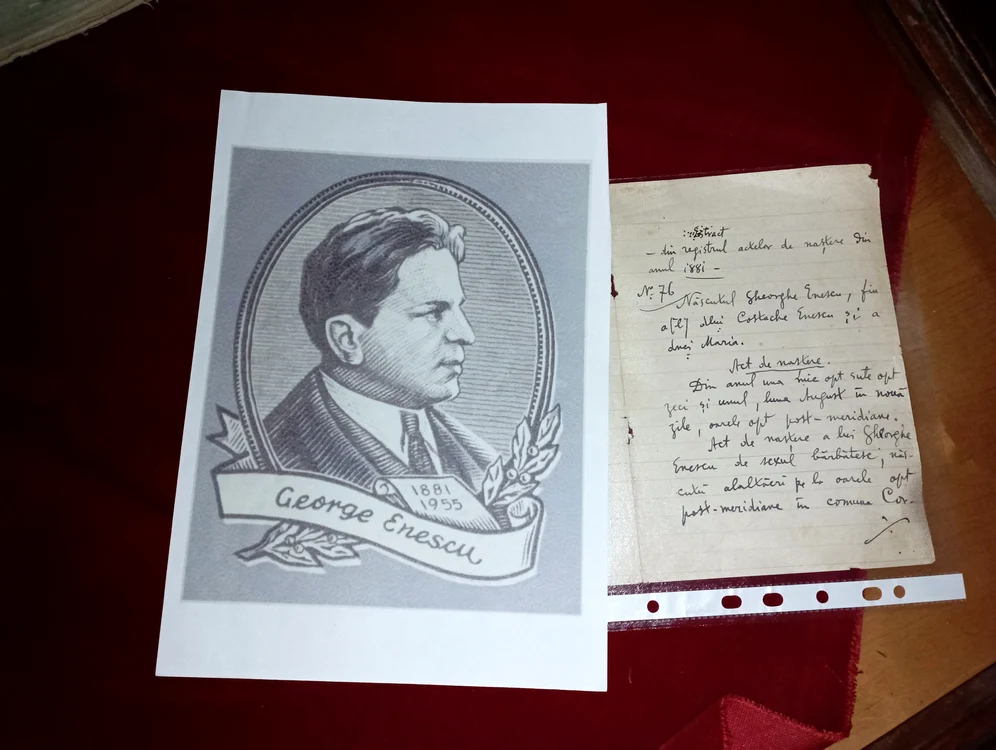 1881
1955
George Enescu
Extract
- din registrul actelor de naștere din
anul 1881 -
Nº 76
Născutul Gheorghe Enescu, fiu
a[l] dlui Costache Enescu și a
dnei Maria.
Act de naștere.
Din anul una mie opt sute opt
zeci și unul, luna August în nouă
zile, oarele opt post-meridiane.
Act de naștere a lui Gheorghe
Enescu de sexul bărbătesc, năs-
cutu alaltăeri pe la oarele opt
post-meridiane în comuna Cor-